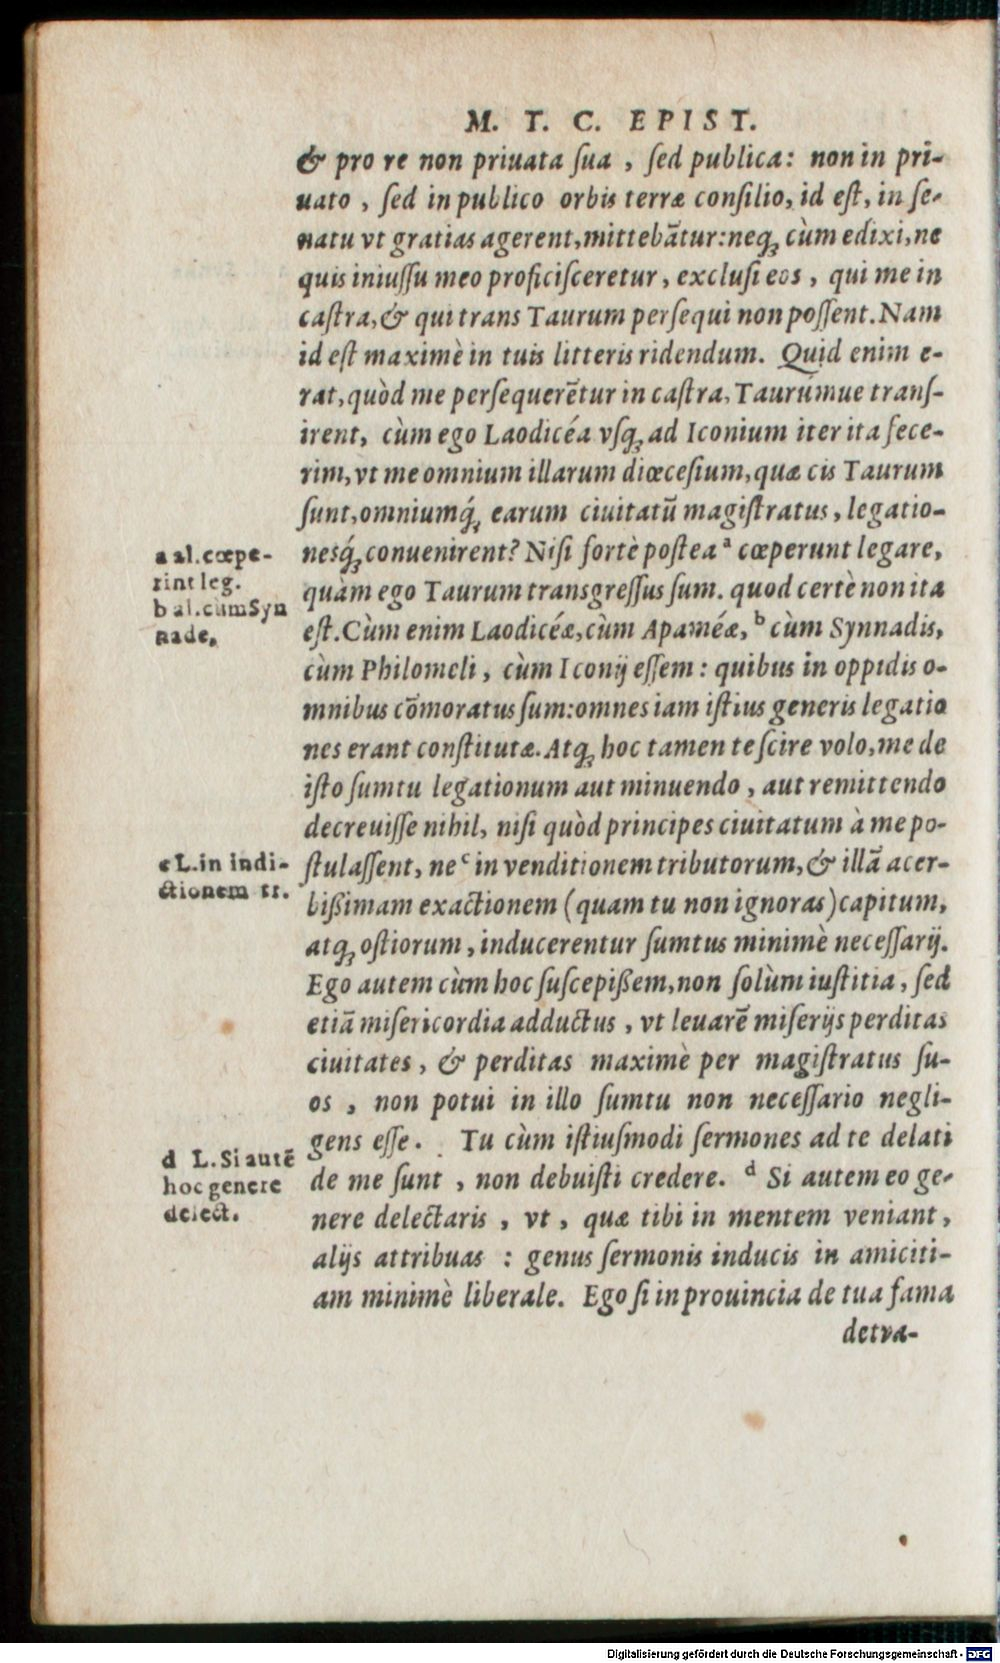 M. T. C. EPIST.
& pro re non priuata ſua , ſed publica: non in pri-
uato , ſed in publico orbis terræ conſilio, id eſt, in ſe-
natu vt gratias agerent, mittebātur: neqꝫ cùm edixi, ne
quis iniuſſu meo proficiſceretur, excluſi eos , qui me in
caſtra, & qui trans Taurum perſequi non poſſent. Nam
id eſt maximè in tuis litteris ridendum. Quid enim e-
rat, quòd me perſequerētur in caſtra, Taurúmue tranſ-
irent, cùm ego Laodicéa vſqꝫ ad Iconium iter ita fece-
rim, vt me omnium illarum diœceſium, quæ cis Taurum
ſunt, omniumq́ꝫ earum ciuitatū magiſtratus, legatio-
nesq́ꝫ conuenirent? Niſi fortè poſtea ᵃ cœperunt legare,
quàm ego Taurum transgreſſus ſum. quod certè non ita
eſt. Cùm enim Laodicéæ, cùm Apaméæ, ᵇ cùm Synnadis,
cùm Philomeli, cùm Iconij eſſem: quibus in oppidis o-
mnibus cōmoratus ſum: omnes iam iſtius generis legatio
nes erant conſtitutæ. Atqꝫ hoc tamen te ſcire volo, me de
iſto ſumtu legationum aut minuendo , aut remittendo
decreuiſſe nihil, niſi quòd principes ciuitatum à me po-
ſtulaſſent, ne ᶜ in venditionem tributorum, & illā acer-
bißimam exactionem (quam tu non ignoras) capitum,
atqꝫ oſtiorum, inducerentur ſumtus minimè neceſſarij.
Ego autem cùm hoc ſuſcepißem, non ſolùm iuſtitia, ſed
etiā miſericordia adductus , vt leuarē miſerijs perditas
ciuitates, & perditas maximè per magiſtratus ſu-
os , non potui in illo ſumtu non neceſſario negli-
gens eſſe. Tu cùm iſtiuſmodi ſermones ad te delati
de me ſunt , non debuiſti credere. ᵈ Si autem eo ge-
nere delectaris , vt , quæ tibi in mentem veniant,
alijs attribuas : genus ſermonis inducis in amiciti-
am minimè liberale. Ego ſi in prouincia de tua fama
detra-
a al. cœpe-
rint leg.
b al. cùm Syn
nade.
c L. in indi-
ctionem tr.
d L. Si autē
hoc genere
delect.
Digitalisierung gefördert durch die Deutsche Forschungsgemeinschaft - DFG